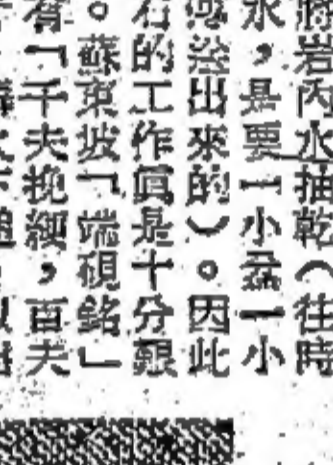 將岩內水抽乾(往時
水,是要一小盂一小
出來的)。因此
石的工作眞是十分艱
。蘇東坡「端硯銘」
有「千夫挽綆,百夫